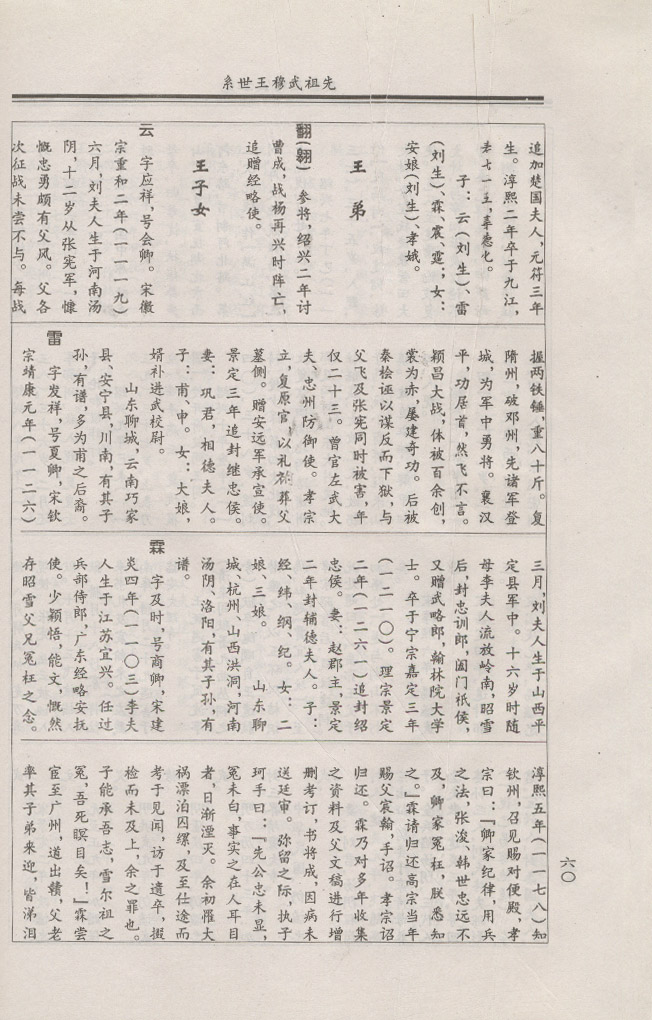 先祖武穆王世系
追加楚国夫人，元符三年
生。淳熙二年卒于九江，
子：云（刘生）、雷
（刘生）、霖、震、霆；女：
安娘（刘生）、孝娥。
王弟
翻(翱) 参将，绍兴二年讨
曹成，战杨再兴时阵亡，
追赠经略使。
王子女
云 字应祥，号会卿。宋徽
宗重和二年（一一一九）
六月，刘夫人生于河南汤
阴，十二岁从张宪军，慷
慨忠勇颇有父风。父各
次征战未尝不与。每战
握两铁锤，重八十斤。复
隋州，破邓州，先诸军登
城，为军中勇将。襄汉
平，功居首，然飞不言。
颖昌大战，体被百余创，
裳为赤，屡建奇功。后被
秦桧诬以谋反而下狱，与
父飞及张宪同时被害，年
仅二十三。曾官左武大
夫、忠州防御使。孝宗
立，复原官，以礼祔葬父
墓侧。赠安远军承宣使。
景定三年追封继忠侯。
妻：巩君，相德夫人。
子：甫、申。女：大娘，
婿补进武校尉。
山东聊城，云南巧家
县、安宁县，川南，有其子
孙，有谱，多为甫之后裔。
雷 字发祥，号夏卿，宋钦
宗靖康元年（一一二六）
三月，刘夫人生于山西平
定县军中。十六岁时随
母李夫人流放岭南，昭雪
后，封忠训郎，阁门祗侯，
又赠武略郎，翰林院大学
士。卒于宁宗嘉定三年
（一二一〇）。理宗景定
二年（一二六一）追封绍
忠侯。妻：赵郡主，景定
二年封辅德夫人。子：
经、纬、纲、纪。女：二
娘、三娘。山东聊
城、杭州、山西洪洞，河南
汤阴、洛阳，有其子孙，有
谱。
霖 字及时，号商卿，宋建
炎四年（一一〇三）李夫
人生于江苏宜兴。任过
兵部侍郎，广东经略安抚
使。少颖悟，能文，慨然
存昭雪父兄冤枉之念。
淳熙五年（一一七八）知
钦州，召见赐对便殿，孝
宗曰：『卿家纪律，用兵
之法，张浚、韩世忠远不
及，卿家冤枉，朕悉知
之。』霖请归还高宗当年
赐父宸翰，手诏。孝宗诏
归还。霖乃对多年收集
之资料及父文稿进行增
删考订，书将成，因病未
送廷审。弥留之际，执子
珂手曰：『先公忠未显，
冤未白，事实之在人耳目
者，日渐湮灭。余初罹大
祸漂泊囚缧，及至仕途而
考于见闻，访于遗卒，掇
检而未及上，余之罪也。
子能承吾志，雪尔祖之
冤，吾死瞑目矣！』霖尝
宦至广州，道出赣，父老
率其子弟来迎，皆涕泪
六〇